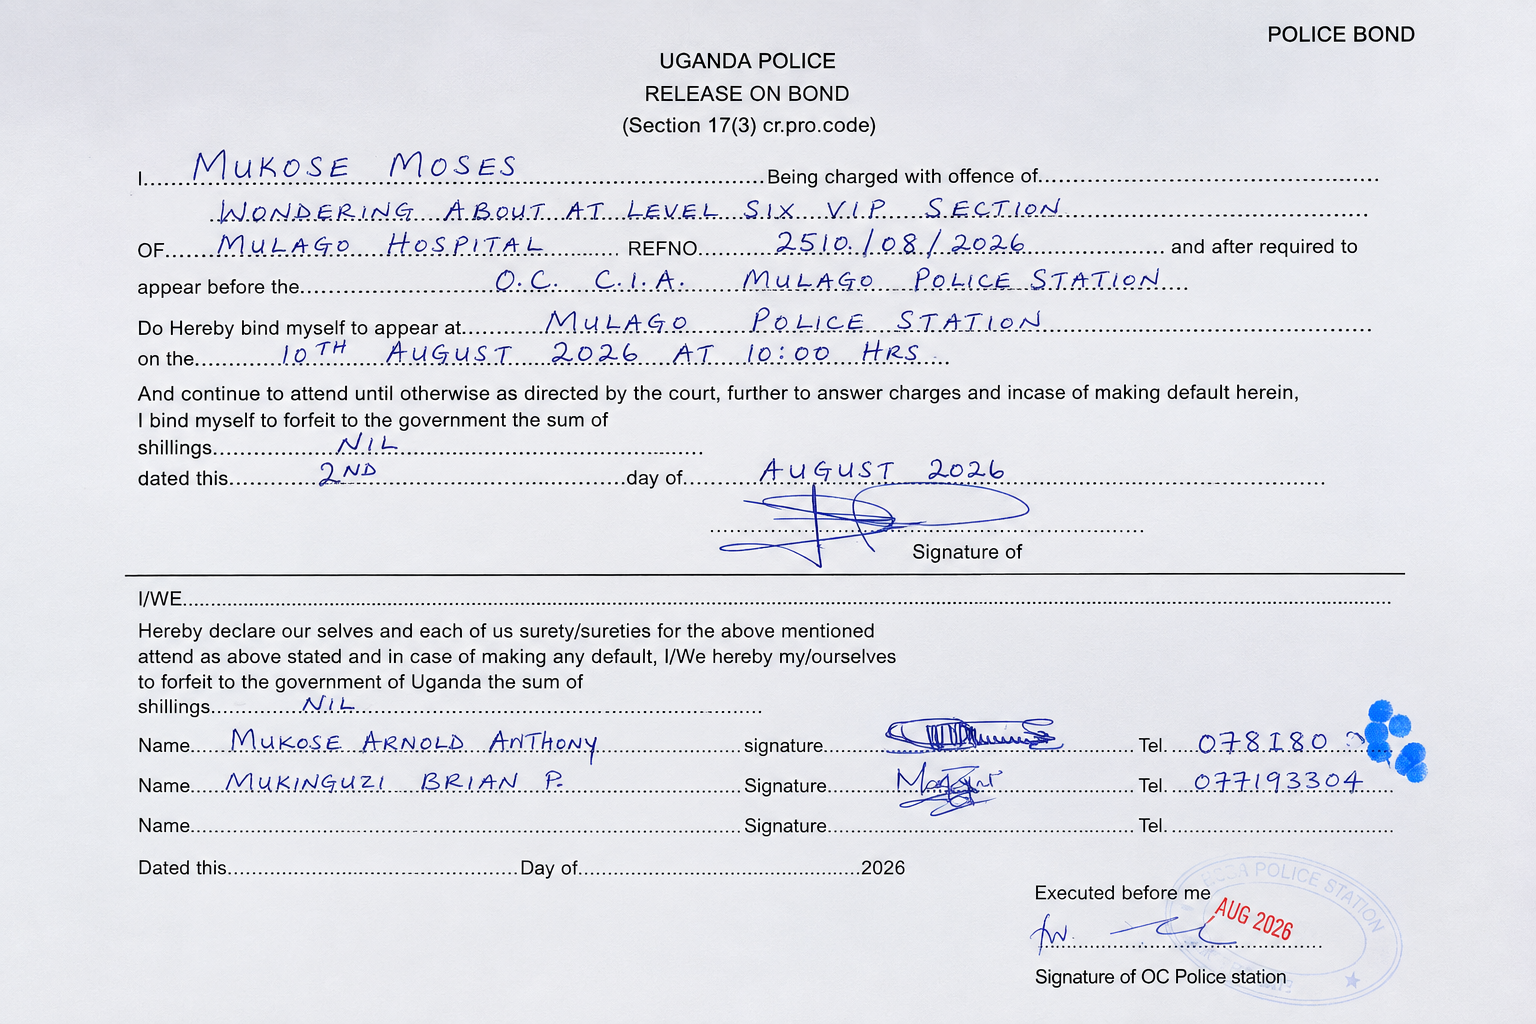 POLICE BOND
UGANDA POLICE
RELEASE ON BOND
(Section 17(3) cr.pro.code)
I.....MUKOSE MOSES.....Being charged with offence of.....
WONDERING ABOUT AT LEVEL SIX V.I.P SECTION
OF.....MULAGO HOSPITAL..... REFNO.....2510./08/2026..... and after required to
appear before the.....O.C. C.I.A. MULAGO POLICE STATION.....
Do Hereby bind myself to appear at.....MULAGO POLICE STATION.....
on the.....10TH AUGUST 2026 AT 10:00 HRS.....
And continue to attend until otherwise as directed by the court, further to answer charges and incase of making default herein,
I bind myself to forfeit to the government the sum of
shillings.....NIL.....
dated this.....2ND.....day of.....AUGUST 2026.....
Signature of
I/WE.....
Hereby declare our selves and each of us surety/sureties for the above mentioned
attend as above stated and in case of making any default, I/We hereby my/ourselves
to forfeit to the government of Uganda the sum of
shillings.....NIL.....
Name.....MUKOSE ARNOLD ANTHONY signature..... Tel....078180
Name.....MUKINGUZI BRIAN P. Signature..... Tel....077193304
Name.....Signature..... Tel.....
Dated this.....Day of.....2026
Executed before me
POLICE STATION
AUG 2026
Signature of OC Police station